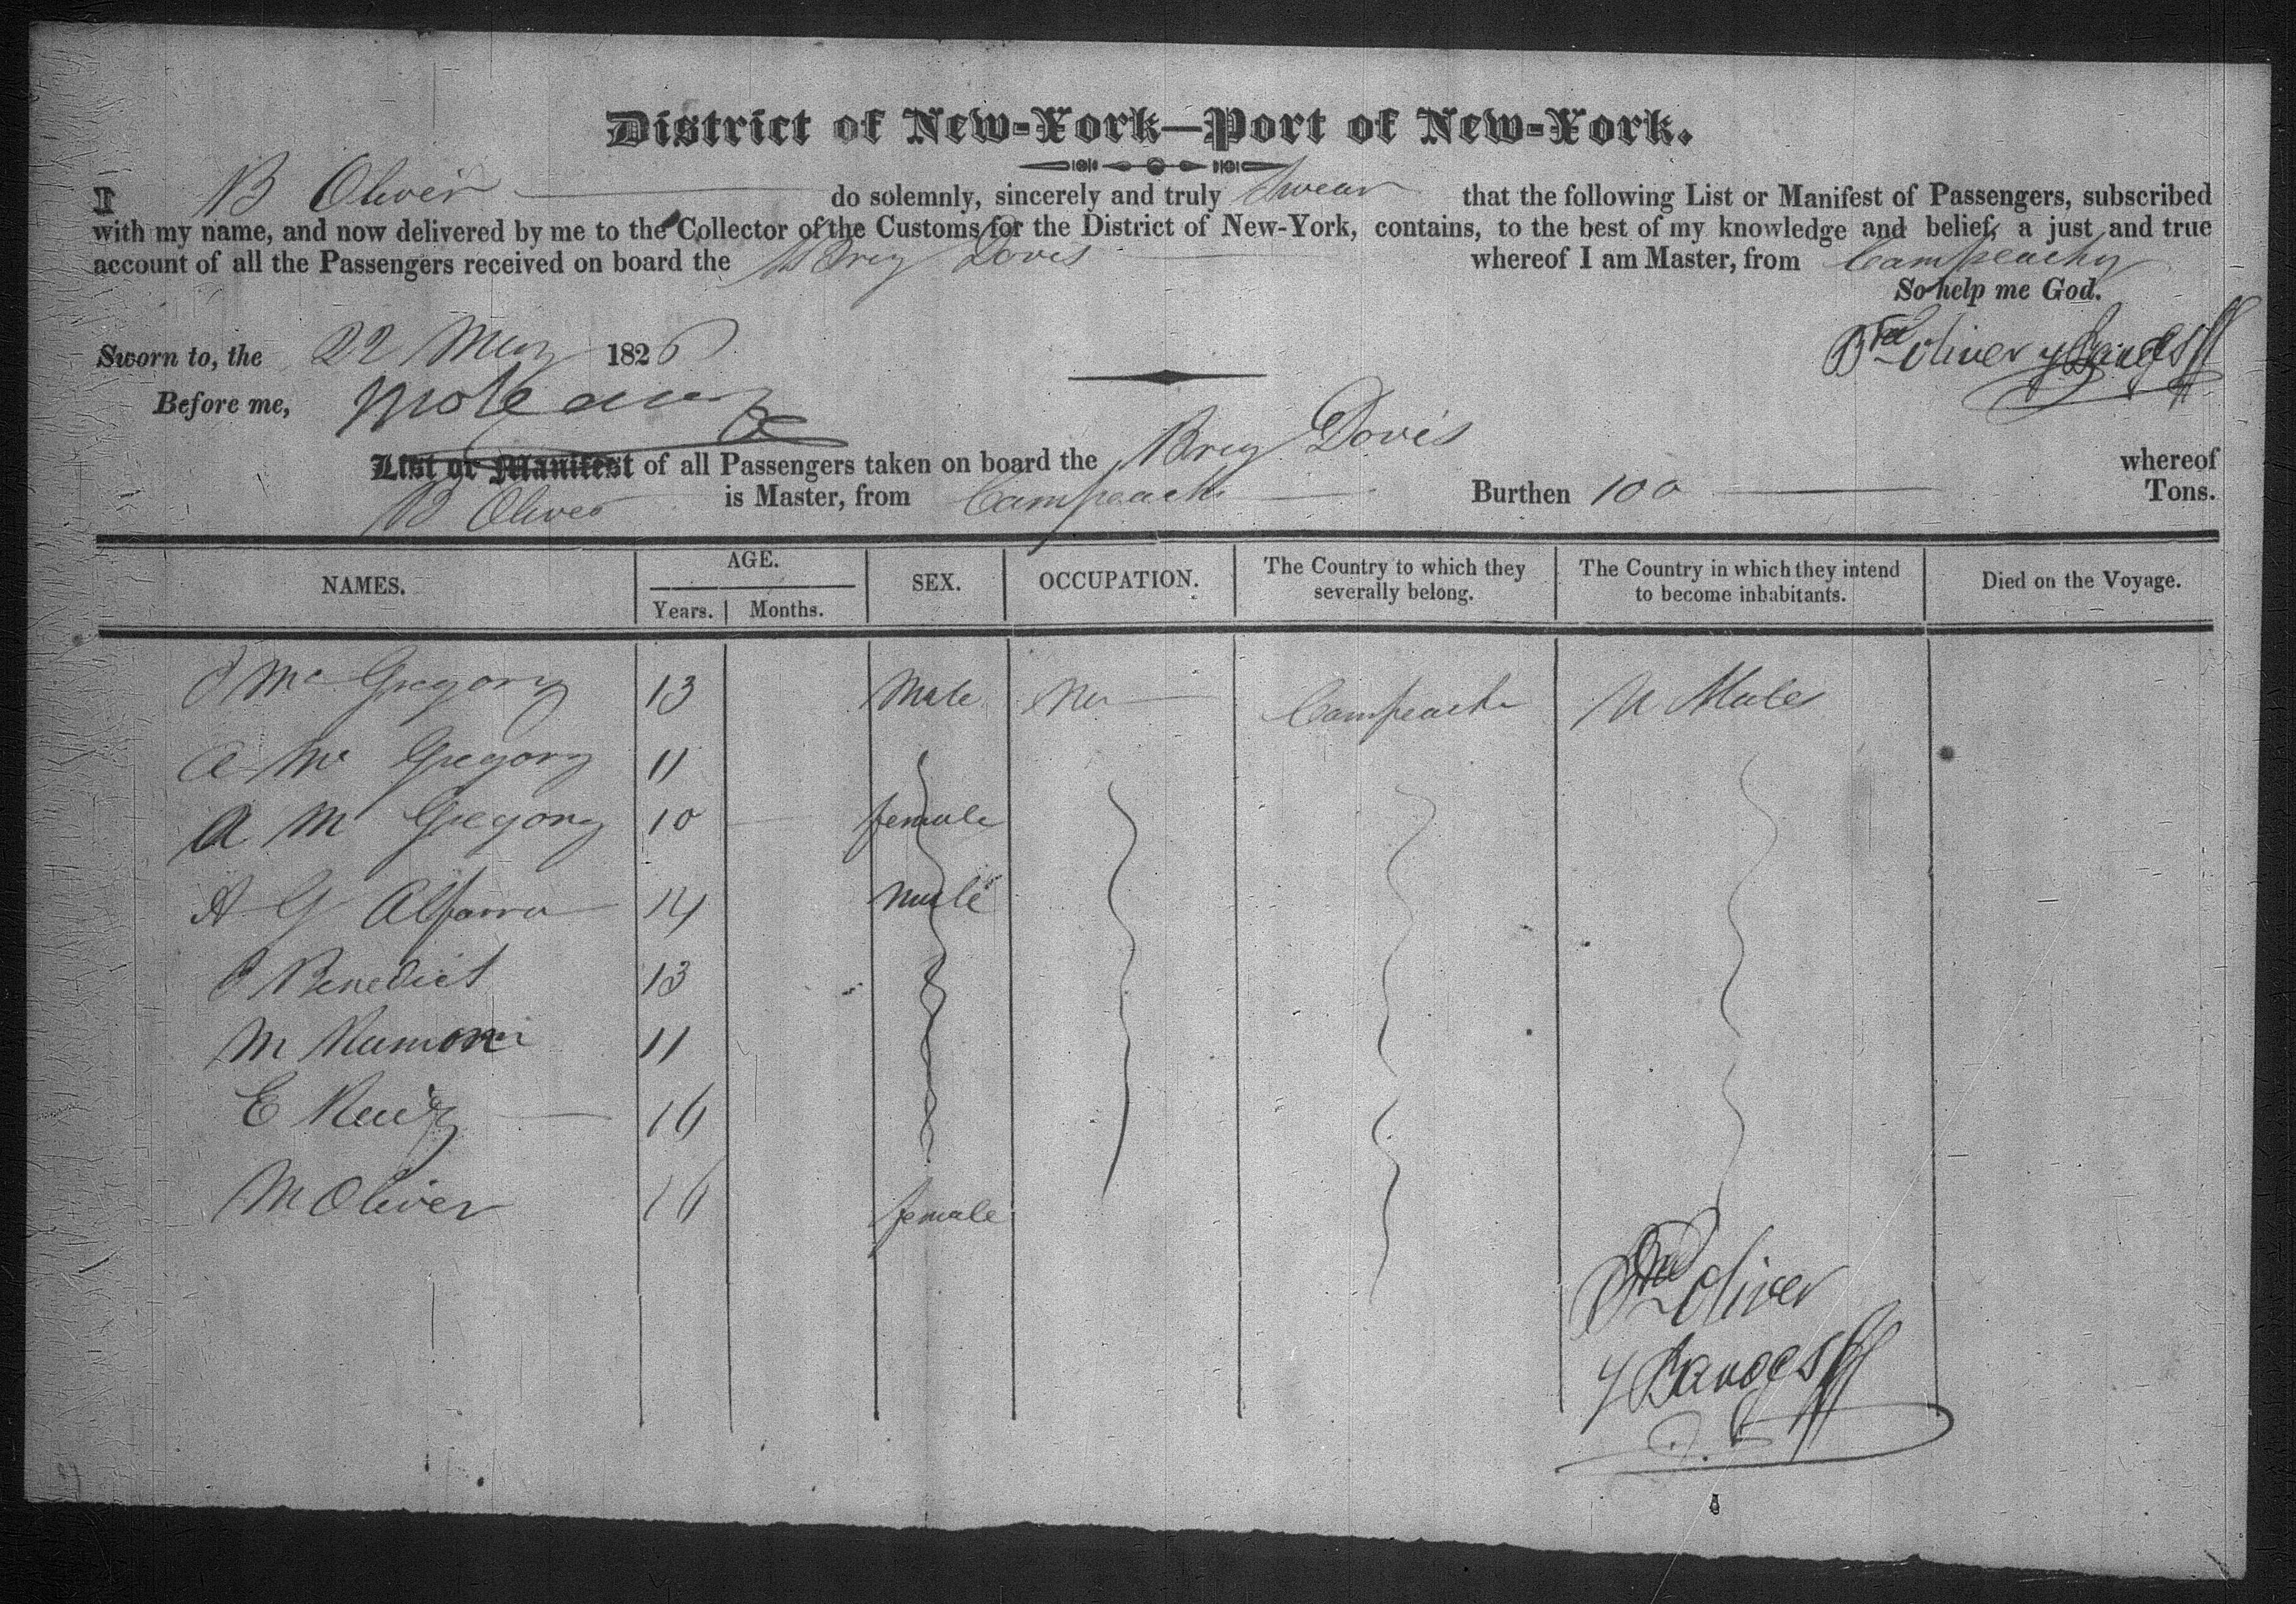 District of New-York—Port of New-York.
I B Oliver do solemnly, sincerely and truly swear that the following List or Manifest of Passengers, subscribed
with my name, and now delivered by me to the Collector of the Customs for the District of New-York, contains, to the best of my knowledge and belief, a just and true
account of all the Passengers received on board the Brig Doris whereof I am Master, from Campeachy
So help me God.
Sworn to, the 22 May 1826
Oliver y
Before me,
List or Manifest of all Passengers taken on board the Brig Doris whereof
B Oliver is Master, from Campeach Burthen 100 Tons.
NAMES. AGE. SEX. OCCUPATION. The Country to which they severally belong. The Country in which they intend to become inhabitants. Died on the Voyage.
Years. Months.
Mc Gregory 13 Male Campeach U States
A Mc Gregory 11
A M Gregory 10 female
A G Alfarro 14 male
Benedict 13
M 11
E Ruiz 16
M Oliver 16 female
Oliver
y